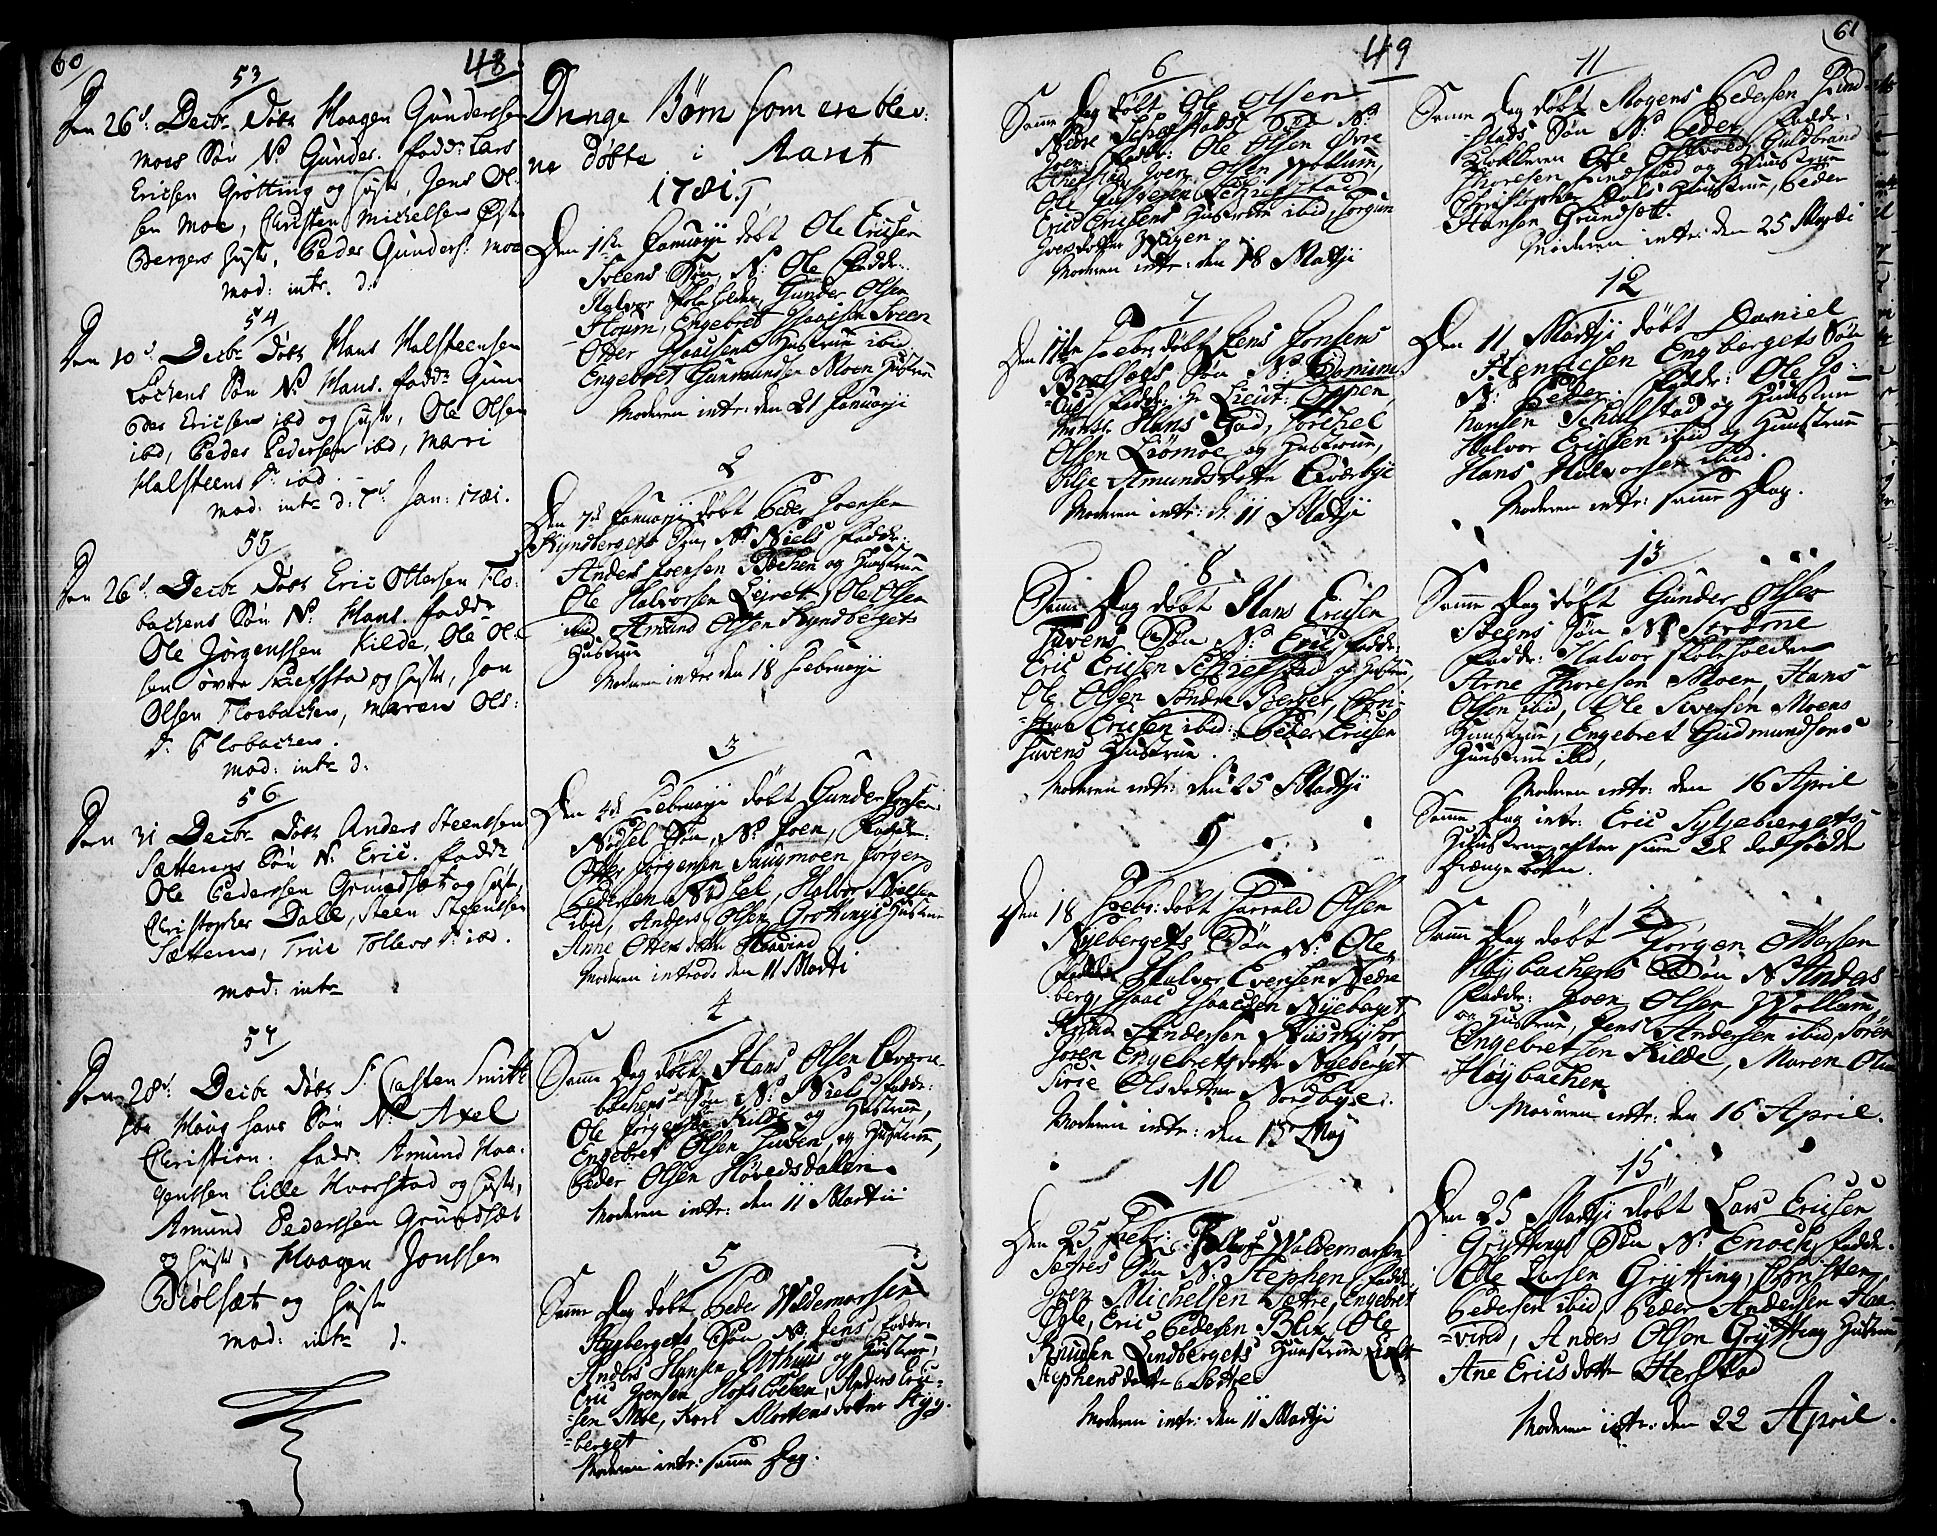 60
48
53
Den 26d: Decbr Døbt Haagen Gundersen
Moes Søn N: Gunder. fadd: Lars
Ericsen Grøtting og Hust, Jens Ol-
sen Moe, Christen Michelsen
Bergers Hust, Peder Gunders: Moe
Mod: intr. d:
54
Den 10d: Decbr Døbt Hans Halsteensen
Løchens Søn N: Hans. fadd: Gun-
der Ericsen ibd og Hust, Ole Olsen
ibd, Peder Pedersen ibd, Mari
Halsteens D: ibd.
Mod: intr d: 7d Jan: 1781.
55
Den 26d: Decbr Døbt Eric Ottersen Flo-
bachens Søn N: Hans. fadd:
Ole Jørgenssen Kilde, Ole Ol-
sen øvre Skiefstad og Hust, Jon
Olsen Floebachen, Maren Ols:
d: Flobachen.
Mod: intr d:
56
Den 31 Decbr Døbt Anders Steenssen
Sætterens Søn N: Eric. fadd:
Ole Pederssen Grundset og Hust,
Christopher Dalle, Steen Steenssen
Sætteren, Trui Tollevs D: ibd.
Mod: intr
57
Den 28d: Decbr Døbt S: Casten Smitt
Haug hans Søn N: Axel
Christian. fadd: Amund Haa-
genssen Lille Hvorstad og Hust,
Amund Pederssen Grundset
og Hust, Haagen Jonssen
Biølset og Hust
Mod: intr d:
Drenge Børn som ere blev-
ne døbte i Aaret
1781.
Den 1ste Januarii døbt Ole Ericsen
Sveens Søn, N: Ole Fadde:
Halvor Skoleholder, Gunder Olsen
Houm, Engebret Isaacsen Sveen
Otter Isaacsens Hustrue ibid
Engebret Gunmundsen Moen Hustrue
Moderen intr: den 21 Januarii
2
Den 7de Januarii døbt Peder Joensen
Kyndbergets Søn, N: Niels Fadde:
Anders Joensen Bachen og Hustrue
Ole Halvorsen Leiret, Ole Olsen
ibid, Amund Olsen Kyndbergets
Hustrue
Moderen intr: den 18 Februarii
3
Den 4de Februarii døbt Gunder Joensen
Nødsel Søn, N: Joen, Fadde:
Otter Jørgensen Saugmoen, Jørgen
Pedersen Nødsel, Halvor Nielsen
ibid, Anders Olsen Grøttings Hustrue
Anne Ottersdatter Haavind
Moderen introd: den 11 Marti
4
Samme Dag døbt Hans Olsen Qværne-
bachens Søn N: Niels fadde:
Ole Jørgensen Kilde og Hustrue,
Engebret Olsen Tuven, og Hustrue,
Peder Olsen Hovedsdalen.
Moderen intr: den 11 Martii
5
Samme Dag døbt Peder Woldemorsen
Hygbergets Søn N: Jens fadde:
Anders Hansen Arthuus og Hustrue,
Eric Joensen Hofsløchen, Anders Eric-
sen Moe, Kari Mortensdatter Hyg-
berget
Moderen intr: samme Dag.
61
49
6
Samme Dag døbt Ole Olsen
Nedre Schiefstads Søn N:
Joen. Fadde: Ole Olsen Øvre
Schiefstad, Joen Olsen Wollum,
Ole Gulvesen Schiefstad,
Eric Ericsens Hustrue ibid, Jorgun
Iversdatter Wiigen.
Moderen intr: den 18 Martji
7
Den 11te Febr: døbt Jens Jonsens
Brølsets Søn N: Domini-
cus Fadde: Hr Lieut: Oppen,
Monsr Hans Gad, Torchel
Olsen Strømoe og Hustrue,
Silje Amundsdatter Qværbye
Moderen intr: d: 11 Martji
8
Samme Dag døbt Hans Ericsen
Tuvens Søn N: Eric fadde:
Eric Ericsen Schiefstad og Hustrue,
Ole Olsen Søndre Berger, Chri-
stian Ericsen ibid: Peder Ericsen
Tuvens Hustrue.
Moderen intr: den 25 Martji
9
Den 18 Febr: døbt Harrald Olsen
Nyebergets Søn N: Ole
Fadde: Halvor Evensen Nedre
berg, Isaac Isaacsen Nyeberget,
Knud Andersen Huusmyhr,
Joren Engebretsdatter Nyeberget
Sirie Olsdatter Nordbye.
Moderen intr: den 13 Maj
10
Den 25 Febr: Tollef Woldemorsen
Setres Søn N: Stephen, fadde:
Joen Michelsen Setre, Engebret
Ygle, Eric Pedersen Blix, Ole
Knudsen Lindbergets Hustrue
Stephensdatter Setre
Moderen intr: den 11 Martji
11
Samme Dag døbt Mogens Pedersen Rund-
stads Søn N: Peder Fadde:
Klokkeren Ole Ostvold, Guldbrand
Thoresen Rundstad og Hustrue
Christopher Dals Hustrue, Peder
Hansen Grundset.
Moderen intr: den 25 Martji
12
Den 11 Martji døbt Daniel
Henricsen Engbergets Søn
N: Peder, Fadde: Ole Jo-
hansen Schiefstad og Hustrue
Halvor Ericsen ibid og Hustrue
Hans Halvorsen ibid.
Moderen intr: samme Dag.
13
Samme Dag døbt Gunder Olsen
Steens Søn N:
Fadde: Halvor Skoleholder
Arne Thoresen Moen, Hans
Olsen ibid, Ole Siversen Moens
Hustrue, Engebret Gudmundsens
Hustrue ibid,
Moderen intr: den 16 April
Samme Dag intr: Eric Syljebergets
Hustrue, efter sine 2de dødfødde
Drænge Børn.
14
Samme Dag døbt Jørgen Ottersen
Høybachens Søn N: Anders
Fadde: Joen Olsen Wollum,
og Hustrue, Jens Andersen ibid, Søren
Engebretsen Kilde, Maren Ols
Høybachen
Moderen intr: den 16 April.
15
Den 25 Martji døbt Lars Ericsen
Gryttings Søn N: Enoch, fadde:
Ole Larsen Grytting, Christen
Pedersen ibid, Peder Andersen Haa-
vind, Anders Olsen Grytting Hustrue,
Ane Ericsdatter Herstad
Moderen intr: den 22 April.